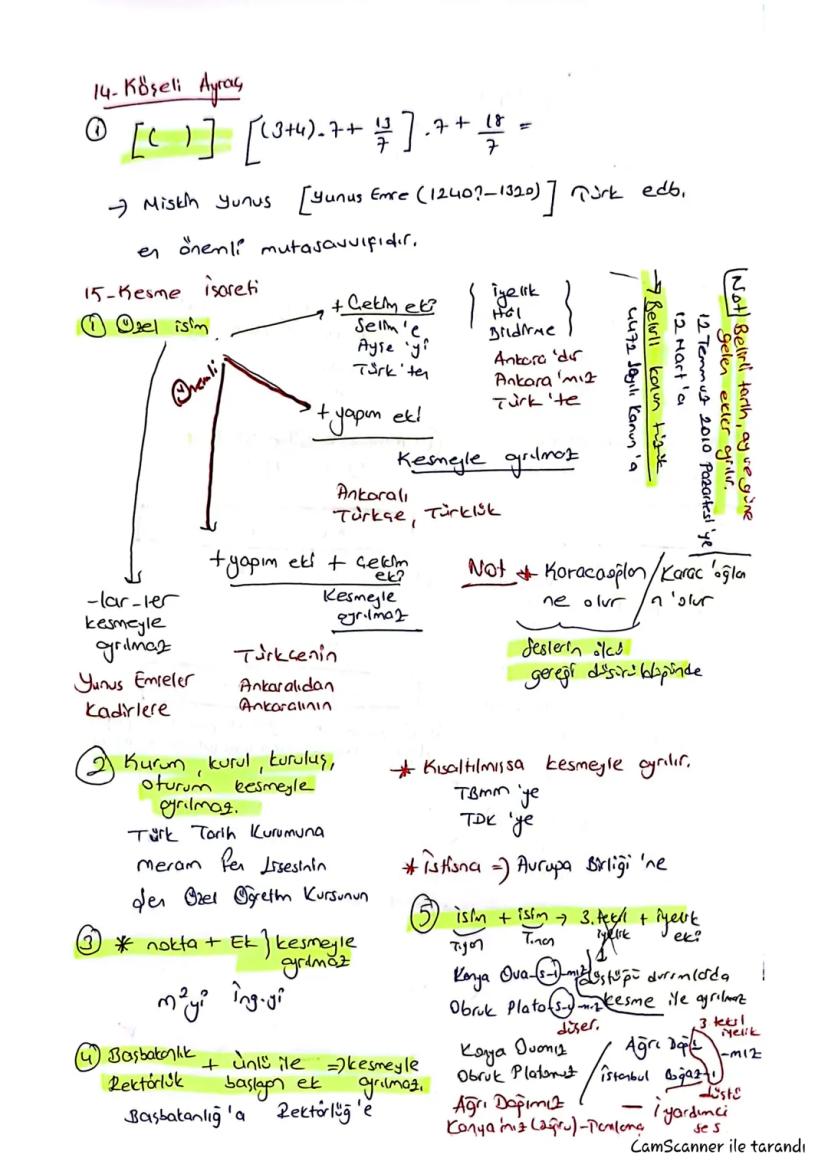 14-Köşeli Ayraç
① [( )] [(3+4).7+ 13/7 ].7+ 18/7 =
→ Miskin Yunus [Yunus Emre (1240?-1320)] Türk edb.
en önemli mutasavvıfıdır.
15-Kesme işareti
① Özel isim
Önemli
+ Çekim eki
Selim'e
Ayşe'yi
Türk'ten
İyelik
Hal
Bildirme
Ankara'dır
Ankara'mız
Türk'te
+ yapım eki
Kesmeyle ayrılmaz
Ankaralı
Türkçe, Türklük
Not Belirli tarih, ay ve güne
gelen ekler ayrılır.
12 Temmuz 2010 Pazartesi'ye
12 Mart'a
→ Belirli kanun
4472 sayılı Kanun'a
+yapım eki + çekim
eki
Kesmeyle
ayrılmaz
Türkçenin
Ankaralıdan
Ankaralının
-lar-ler
kesmeyle
ayrılmaz
Yunus Emreler
Kadirlere
Not * Karacaoğlan / Karac'oğlan
ne olur / n'olur
Seslerin ölçü
gereği
② Kurum, kurul, kuruluş,
oturum kesmeyle
ayrılmaz.
Türk Tarih Kurumuna
Meram Fen Lisesinin
Özel Öğretim Kursunun
* Kısaltılmışsa kesmeyle ayrılır.
TBMM'ye
TDK'ye
* İstisna => Avrupa Birliği'ne
③ * nokta + Ek } kesmeyle
ayrılmaz
m²yi İng.yi
④ Başbakanlık
Rektörlük + ünlü ile => kesmeyle
başlayan ek ayrılmaz.
Başbakanlığ'a Rektörlüğ'e
⑤ isim + isim → 3.tekil + iyelik
iyelik eki
T.yan T.nan
Konya Ova-s-ı-mız düştüğü durumlarda
Obruk Plato-s-u-muz kesme ile ayrılmaz
düşer.
Konya Ovamız
Obruk Platomuz
Ağrı Dağımız
Ağrı Dağı
İstanbul Boğazı
-mız
3 tekil
iyelik
düştü
— ı yardımcı
ses
Konya'mız (doğru)
CamScanner ile tarandı